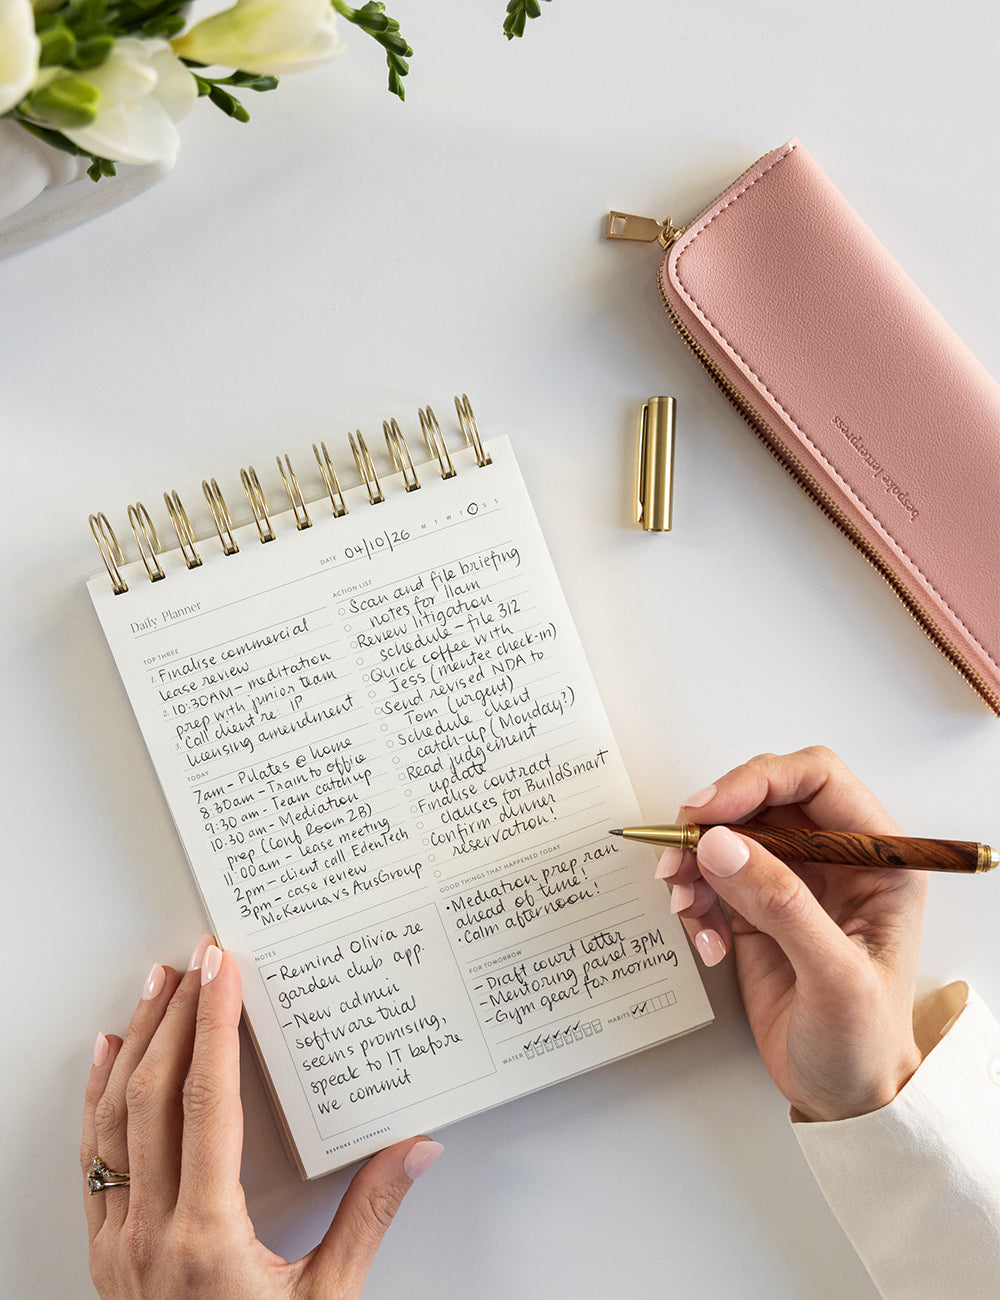 DATE 04/10/26 M T W T F S S
Daily Planner
TOP THREE
1. Finalise commercial
lease review
2. 10:30AM - meditation
prep with junior team
3. Call client re: IP
licensing amendment
TODAY
7am - Pilates @ home
8:30am - Train to office
9:30am - Team catchup
10:30am - Mediation
prep (Conf Room 2B)
11:00am - lease meeting
2pm - client call EdenTech
3pm - case review
McKenna vs AusGroup
ACTION LIST
Scan and file briefing
notes for 11am
Review litigation
schedule - file 312
Quick coffee with
Jess (mentee check-in)
Send revised NDA to
Tom (urgent)
Schedule client
catch-up (Monday?)
Read judgement
update
Finalise contract
clauses for BuildSmart
Confirm dinner
reservation!
GOOD THINGS THAT HAPPENED TODAY
• Mediation prep ran
ahead of time!
• Calm afternoon!
NOTES
- Remind Olivia re
garden club app.
- New admin
software trial
seems promising,
speak to IT before
we commit
FOR TOMORROW
- Draft court letter
- Mentoring panel 3PM
- Gym gear for morning
WATER HABITS
BESPOKE LETTERPRESS
bespoke letterpress